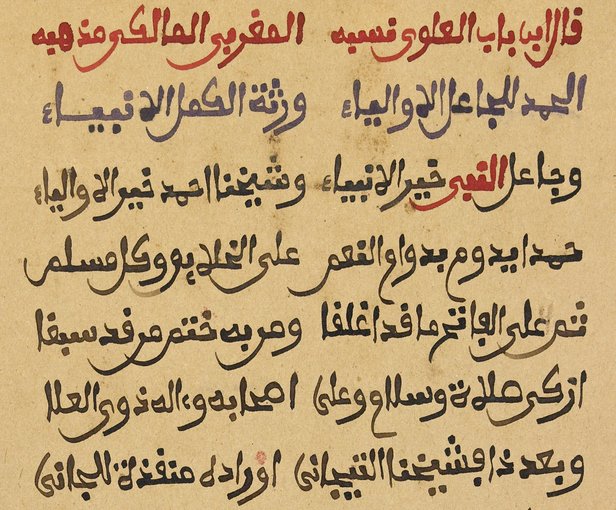 قال ابن باب العلوي نسبه المغربي المالكي مذهبه
الحمد للجاعل الاولياء ورثة الكمل الانبياء
وجاعل النبي خير الانبياء وشيخنا احمد خير الاولياء
حمدا يدوم بدوام النعم على الخلائق وكل مسلم
ثم على الفاتح ما قد اغلقا ومن به ختم من قد سبقا
ازكى صلاة وسلام وعلى اصحابه وءاله ذوي العلا
وبعد ذا فشيخنا التيجاني اوراده منقذة للجاني